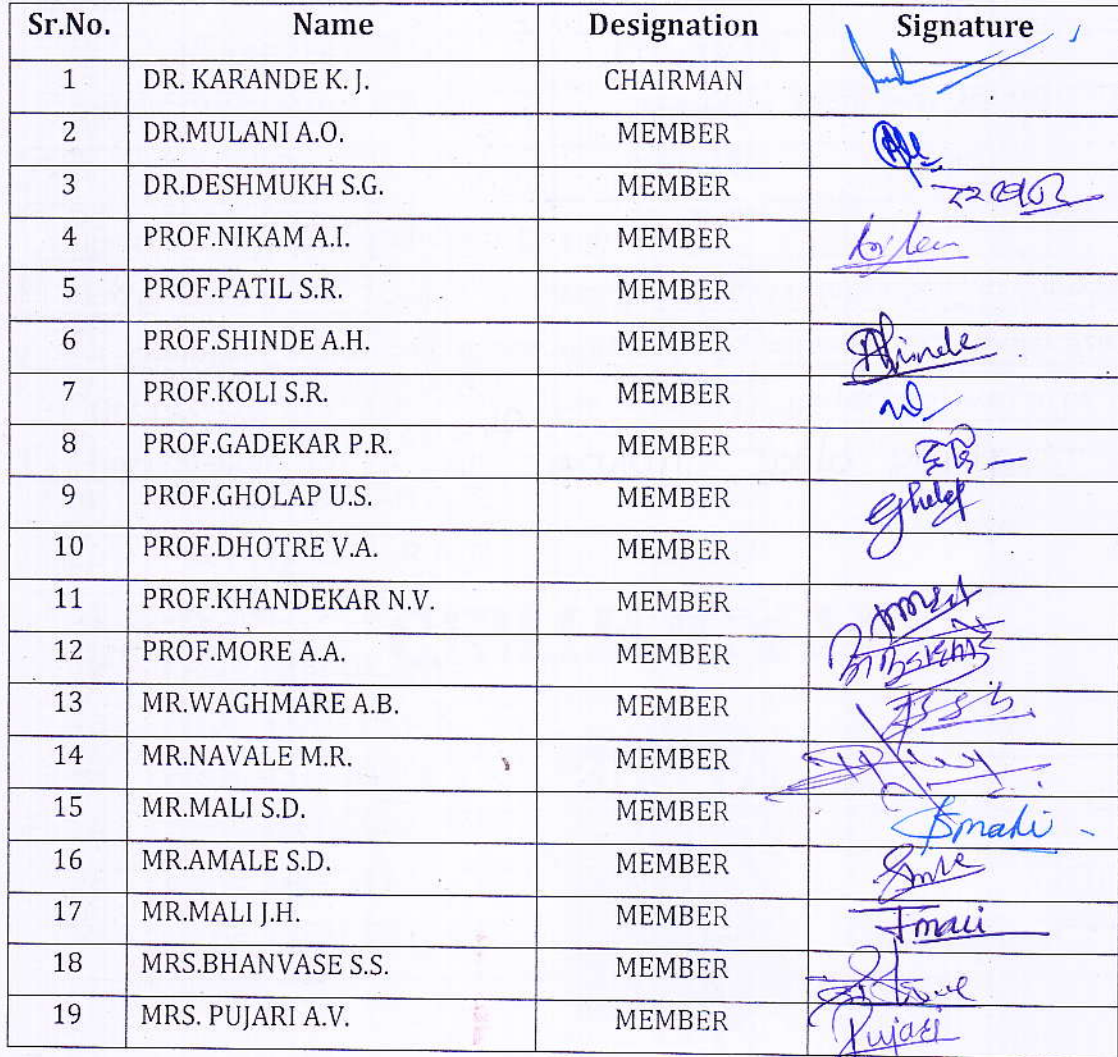 Sr.No. Name Designation Signature
1 DR. KARANDE K. J. CHAIRMAN
2 DR.MULANI A.O. MEMBER
3 DR.DESHMUKH S.G. MEMBER
4 PROF.NIKAM A.I. MEMBER
5 PROF.PATIL S.R. MEMBER
6 PROF.SHINDE A.H. MEMBER AHinde
7 PROF.KOLI S.R. MEMBER
8 PROF.GADEKAR P.R. MEMBER
9 PROF.GHOLAP U.S. MEMBER Gholap
10 PROF.DHOTRE V.A. MEMBER
11 PROF.KHANDEKAR N.V. MEMBER
12 PROF.MORE A.A. MEMBER
13 MR.WAGHMARE A.B. MEMBER
14 MR.NAVALE M.R. MEMBER
15 MR.MALI S.D. MEMBER Smali
16 MR.AMALE S.D. MEMBER
17 MR.MALI J.H. MEMBER Jmali
18 MRS.BHANVASE S.S. MEMBER
19 MRS. PUJARI A.V. MEMBER Pujari